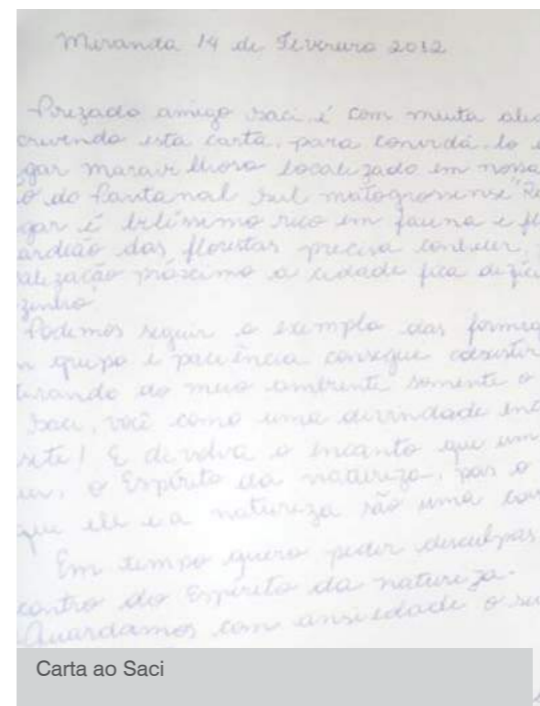 Miranda 14 de Fevereiro 2012
Prezado amigo Saci, é com muita ale
crevendo esta carta, para convidá-lo
gar maravilhoso localizado em nossa
o do Pantanal Sul matogrossense "Re
gar é belíssimo rico em fauna e fl
ardião das florestas precisa conhecer,
alização próximo a cidade fica difíci
zinho
Podemos seguir o exemplo das formig
m grupo e paciência consegue coexistir
tirando do meio ambiente somente o
Saci, você como uma divindade
! E devolva o encanto que um
o Espírito da natureza, pois o
que ele e a natureza são uma
Em tempo quero pedir desculpas
contro do Espírito da natureza.
Aguardamos com ansiedade o su
Carta ao Saci